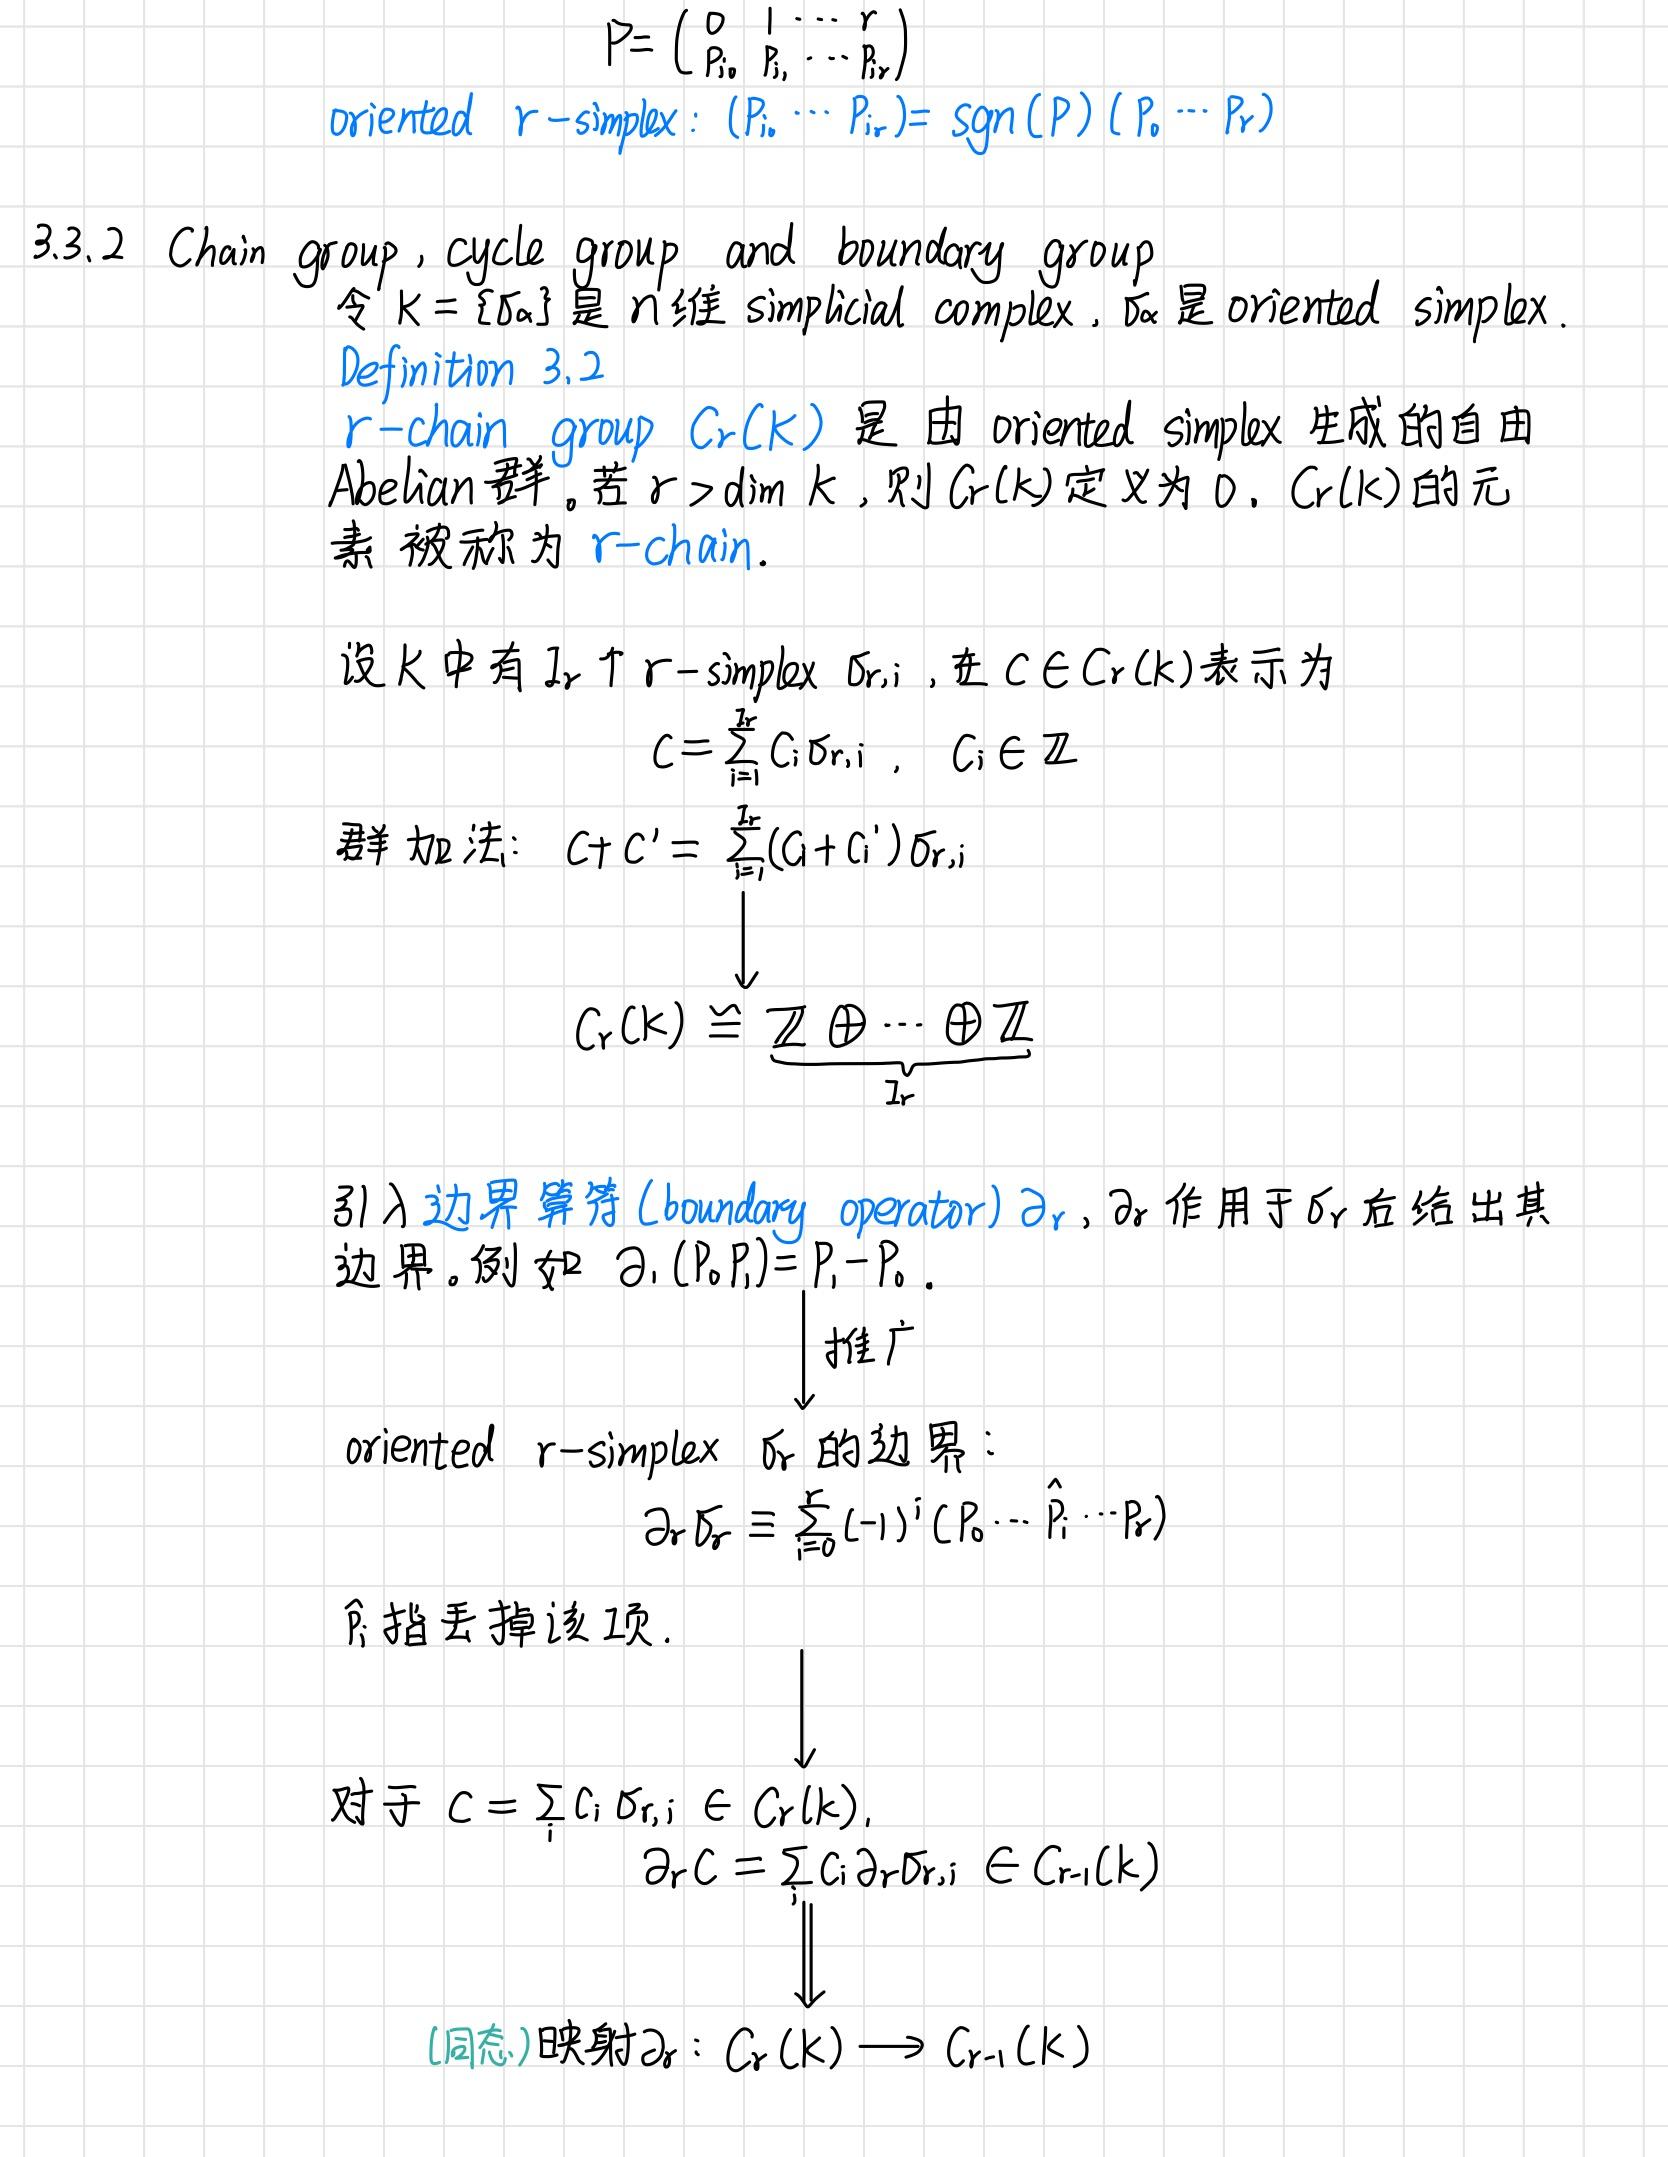 P= ( 0 1 ⋯ r
P_{i_0} P_{i_1} ⋯ P_{i_r} )
oriented r-simplex: (P_{i_0} ⋯ P_{i_r}) = sgn(P) (P_0 ⋯ P_r)
3.3.2 Chain group, cycle group and boundary group
令 K = {σ_α} 是 n 维 simplicial complex, σ_α 是 oriented simplex.
Definition 3.2
r-chain group C_r(K) 是 由 oriented simplex 生成的自由
Abelian 群。若 r > dim K, 则 C_r(K) 定义为 0. C_r(K) 的元
素 被称为 r-chain.
设 K 中有 I_r 个 r-simplex σ_{r,i}, C ∈ C_r(K) 表示为
C = ∑_{i=1}^{I_r} C_i σ_{r,i}, C_i ∈ ℤ
群加法: C + C' = ∑_{i=1}^{I_r} (C_i + C_i') σ_{r,i}
↓
C_r(K) ≅ ℤ ⊕ ⋯ ⊕ ℤ
I_r
引入边界算符(boundary operator) ∂_r, ∂_r 作用于σ_r 后给出其
边界。例如 ∂_1 (P_0 P_1) = P_1 − P_0.
↓ 推广
oriented r-simplex σ_r 的边界:
∂_r σ_r ≡ ∑_{i=0}^{r} (−1)^i (P_0 ⋯ P̂_i ⋯ P_r)
P̂_i 指丢掉该项.
↓
对于 C = ∑_i C_i σ_{r,i} ∈ C_r(K),
∂_r C = ∑_i C_i ∂_r σ_{r,i} ∈ C_{r-1}(K)
⇓
(同态)映射∂_r : C_r(K) ⟶ C_{r-1}(K)